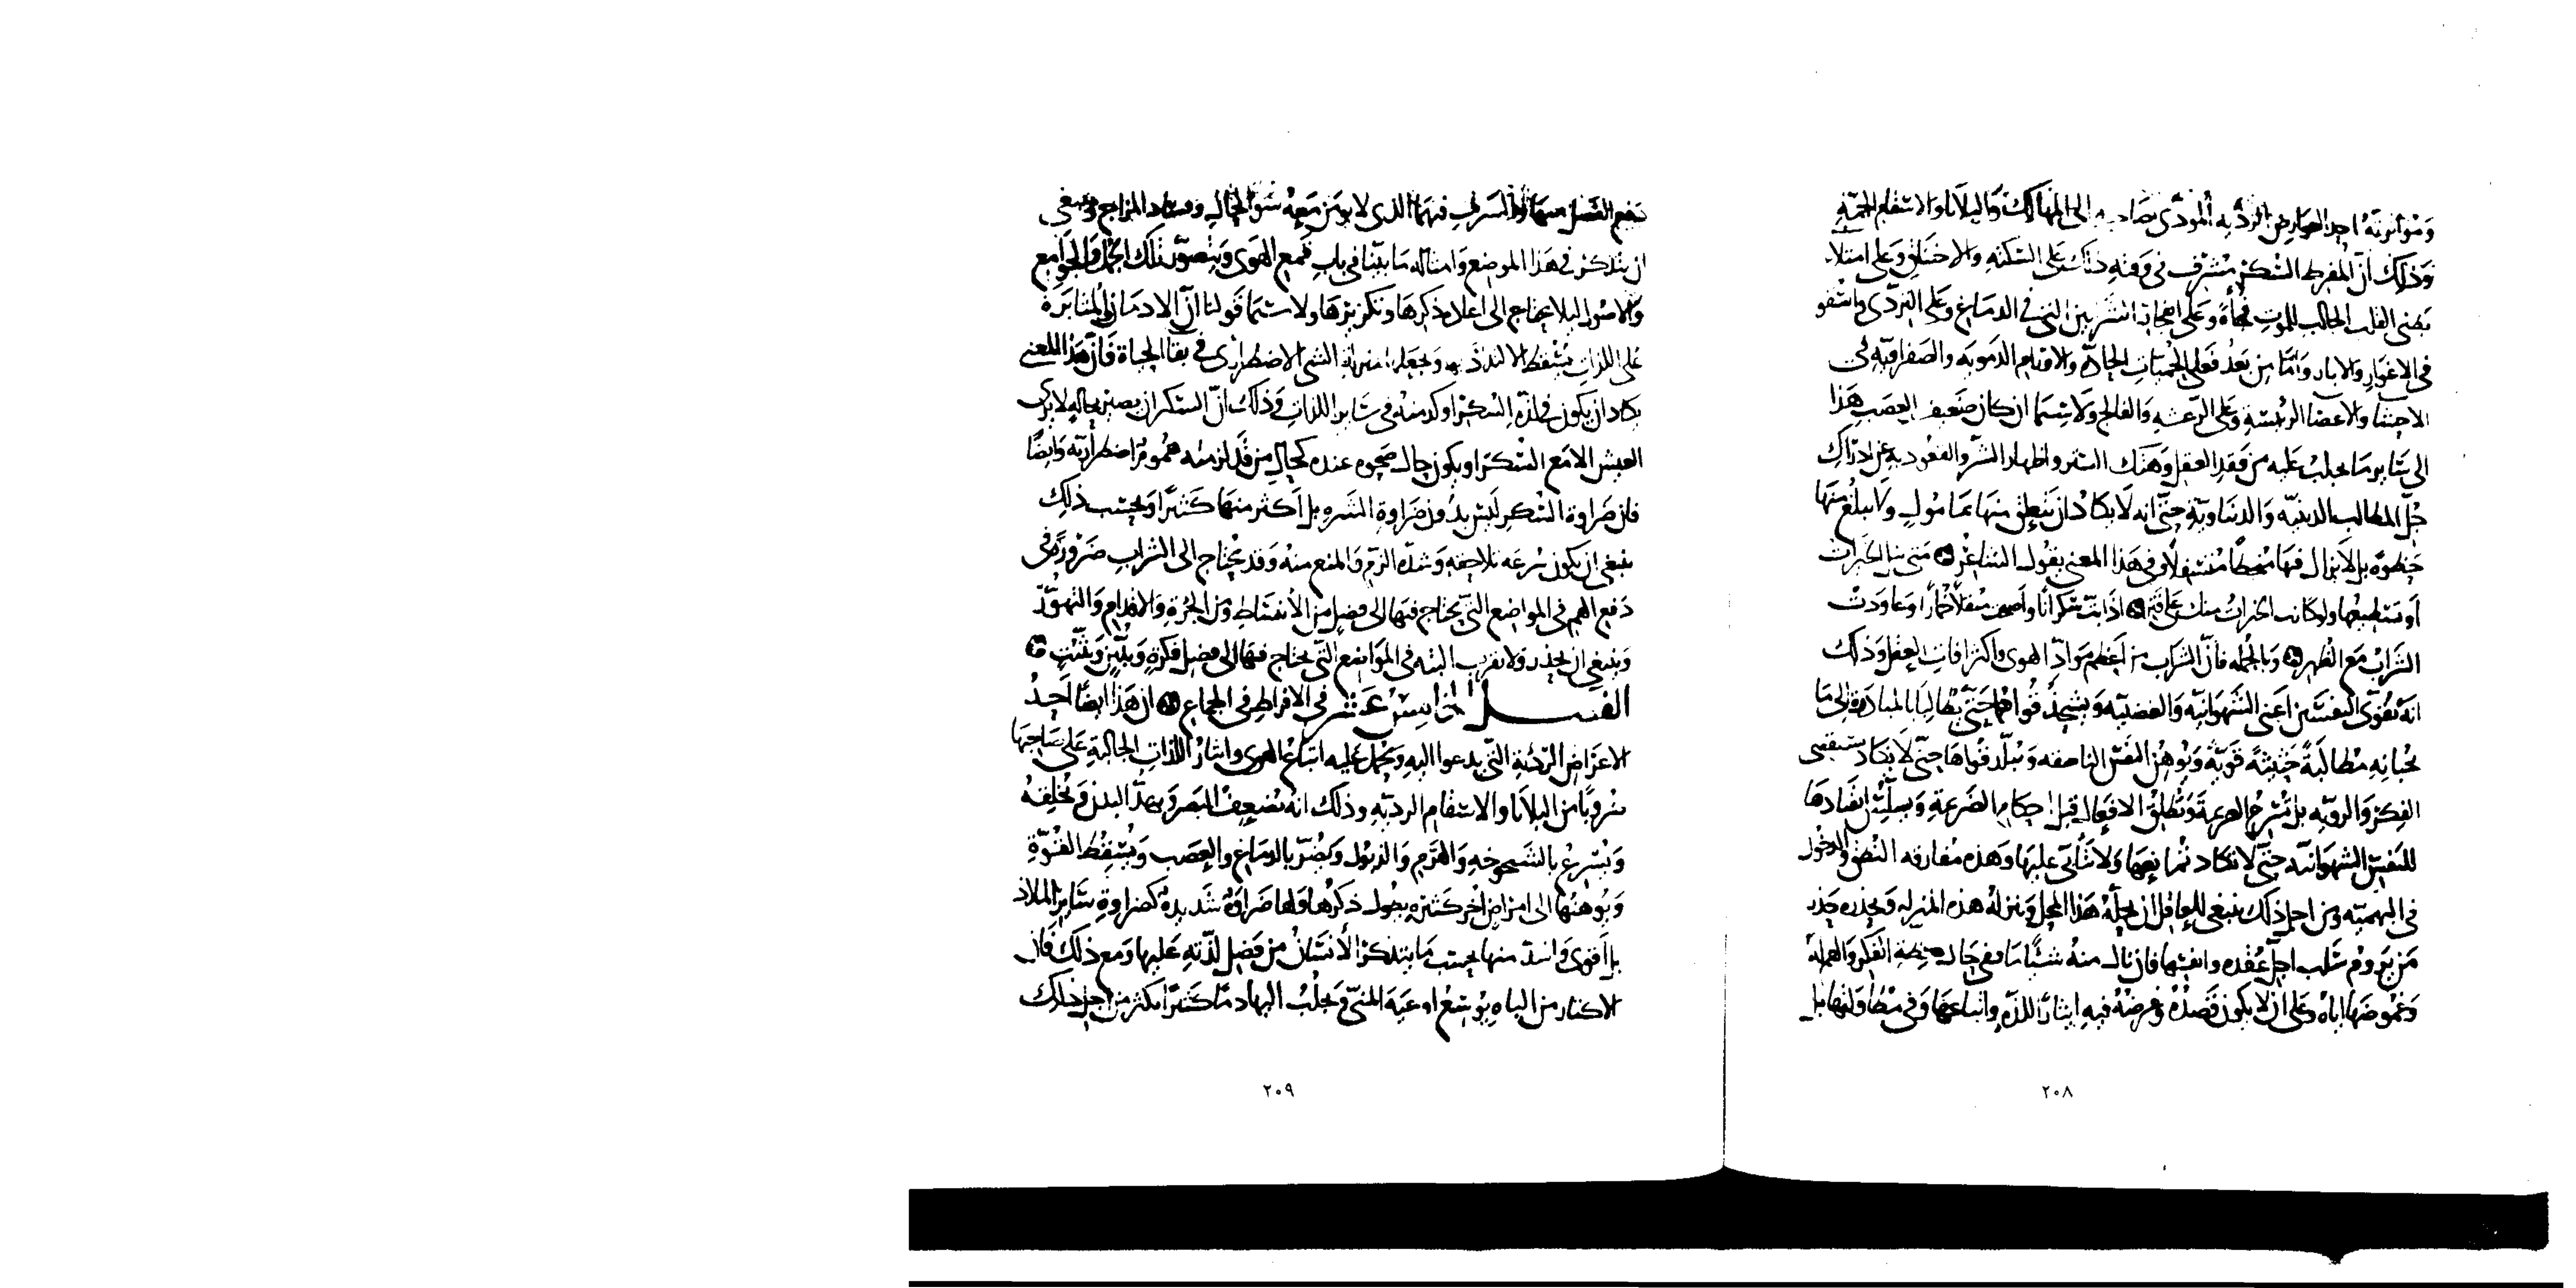 ومواترته احد العوارض الردية المؤدى بصاحبه الى المهالك والبلايا والاسقام الجمة
وذلك ان المفرط السكر مشرف فى وقته ذلك على السكتة والاختناق وعلى امتلا
بطنى القلب الجالب للموت فجأة وعلى انفجار الشريين التى فى الدماغ وعلى التردى والسقوط
فى الاغوار والابار واما من بعد فعلى الحميات الحادة والاورام الدموية والصفراوية فى
الاحشا والاعضا الرئيسة وعلى الرعشة والفالج ولا سيما ان كان ضعيف العصب هذا
الى سائر ما يجلب عليه من فقد العقل وهتك الستر واظهار السر والقعود به عن ادراك
جل المطالب الدينية والدنياوية حتى انه لا يكاد ان يتعلق منها بمامول ولا يبلغ منها
حظوة بل لا يزال فيها منحطا متسفلا وفى هذا المعنى يقول الشاعر متى تنل الخيرات
او تستطيعها ولو كانت الخيرات منك على فتر اذا بت سكرانا واصبحت مثقلا خمارا وعاودت
الشراب مع الظهر وبالجملة فان الشراب من اعظم مواد الهوى واكثر افات العقل وذلك
انه يقوى النفسين اعنى الشهوانية والغضبية ويشحذ قواهما حتى يطالبا بالمبادرة الى ما
يحبانه مطالبة حثيثة قوية ويوهن النفس الناطقة ويبلد قواها حتى لا تكاد تستقصى
الفكر والروية بل تسرع العزيمة وتطلق الافعال قبل احكام الصريمة ويسلس انقيادها
للنفس الشهوانية حتى لا تكاد تمانعها ولا تتأبى عليها وهذه مفارقة النطق والدخول
فى البهيمية ومن اجل ذلك ينبغى للعاقل ان يحله هذا المحل وينزله هذه المنزلة ويحذره حذر
من يروم سلب اجل عقده وانفسها فان نال منه شيئا ما ففى حال كظة الفكر والهم له
وغموضها اياه وعلى ان لا يكون قصده وغرضه فيه ايثار اللذة واتباعها وفى مطاولتها بل
دفع الفضل منها والسرف فيهما الذى لا يومن معه سو الحال وفساد المزاج وينبغى
ان يتذكر فى هذا الموضع وامثاله ما بينا فى باب قمع الهوى ويتصور تلك الجمل والجوامع
والاصول ليلا يحتاج الى اعادة ذكرها وتكريرها ولا سيما قولنا ان الادمان والمثابرة
على اللذات يسقط الالتذاذ به ويجعله بمنزلة الشى الاضطرارى فى بقا الحياة فان هذا المعنى
يكاد ان يكون فى لذة السكر اوكد منه فى سائر اللذات وذلك ان السكران يصير بحالة لا يرى
العيش الا مع السكر ويكون حال صحوه عنده كحال من قد لزمته هموم اضطرارية وايضا
فان ضراوة السكر ليس بدون ضراوة الشره بل اكثر منها كثيرا وبحسب ذلك
ينبغى ان يكون سرعة تلاحقه وشدة الزم والمنع منه وقد يحتاج الى الشراب ضرورة فى
دفع الهم فى المواضع التى يحتاج فيها الى فضل من الانبساط ومن الجرءة والاقدام والتهور
وينبغى ان يحذر ولا يقرب البتة فى المواضع التى يحتاج فيها الى فضل فكرة وتبين وتثبت
الفصل الخامس عشر فى الافراط فى الجماع ان هذا ايضا احد
الاعراض الرديئة التى يدعوا اليه ويحمل عليه اتباع الهوى وايثار اللذات الجالبة على صاحبها
ضروبا من البلايا والاسقام الردية وذلك انه يضعف البصر ويهد البدن ويخلقه
ويسرع بالشيخوخة والهرم والذبول ويضر بالدماغ والعصب ويسقط القوة
ويوهنها الى امراض اخر كثيرة يطول ذكرها ولها ضراوة شديدة كضراوة سائر الملاذ
بل اقوى واشد منها بحسب ما يتذكر الانسان من فضل لذته عليها ومع ذلك فان
الاكثار من الباه يوسع اوعية المنى ويجلب اليها دما كثيرا يكثر من اجل ذلك
٢٠٩
٢٠٨